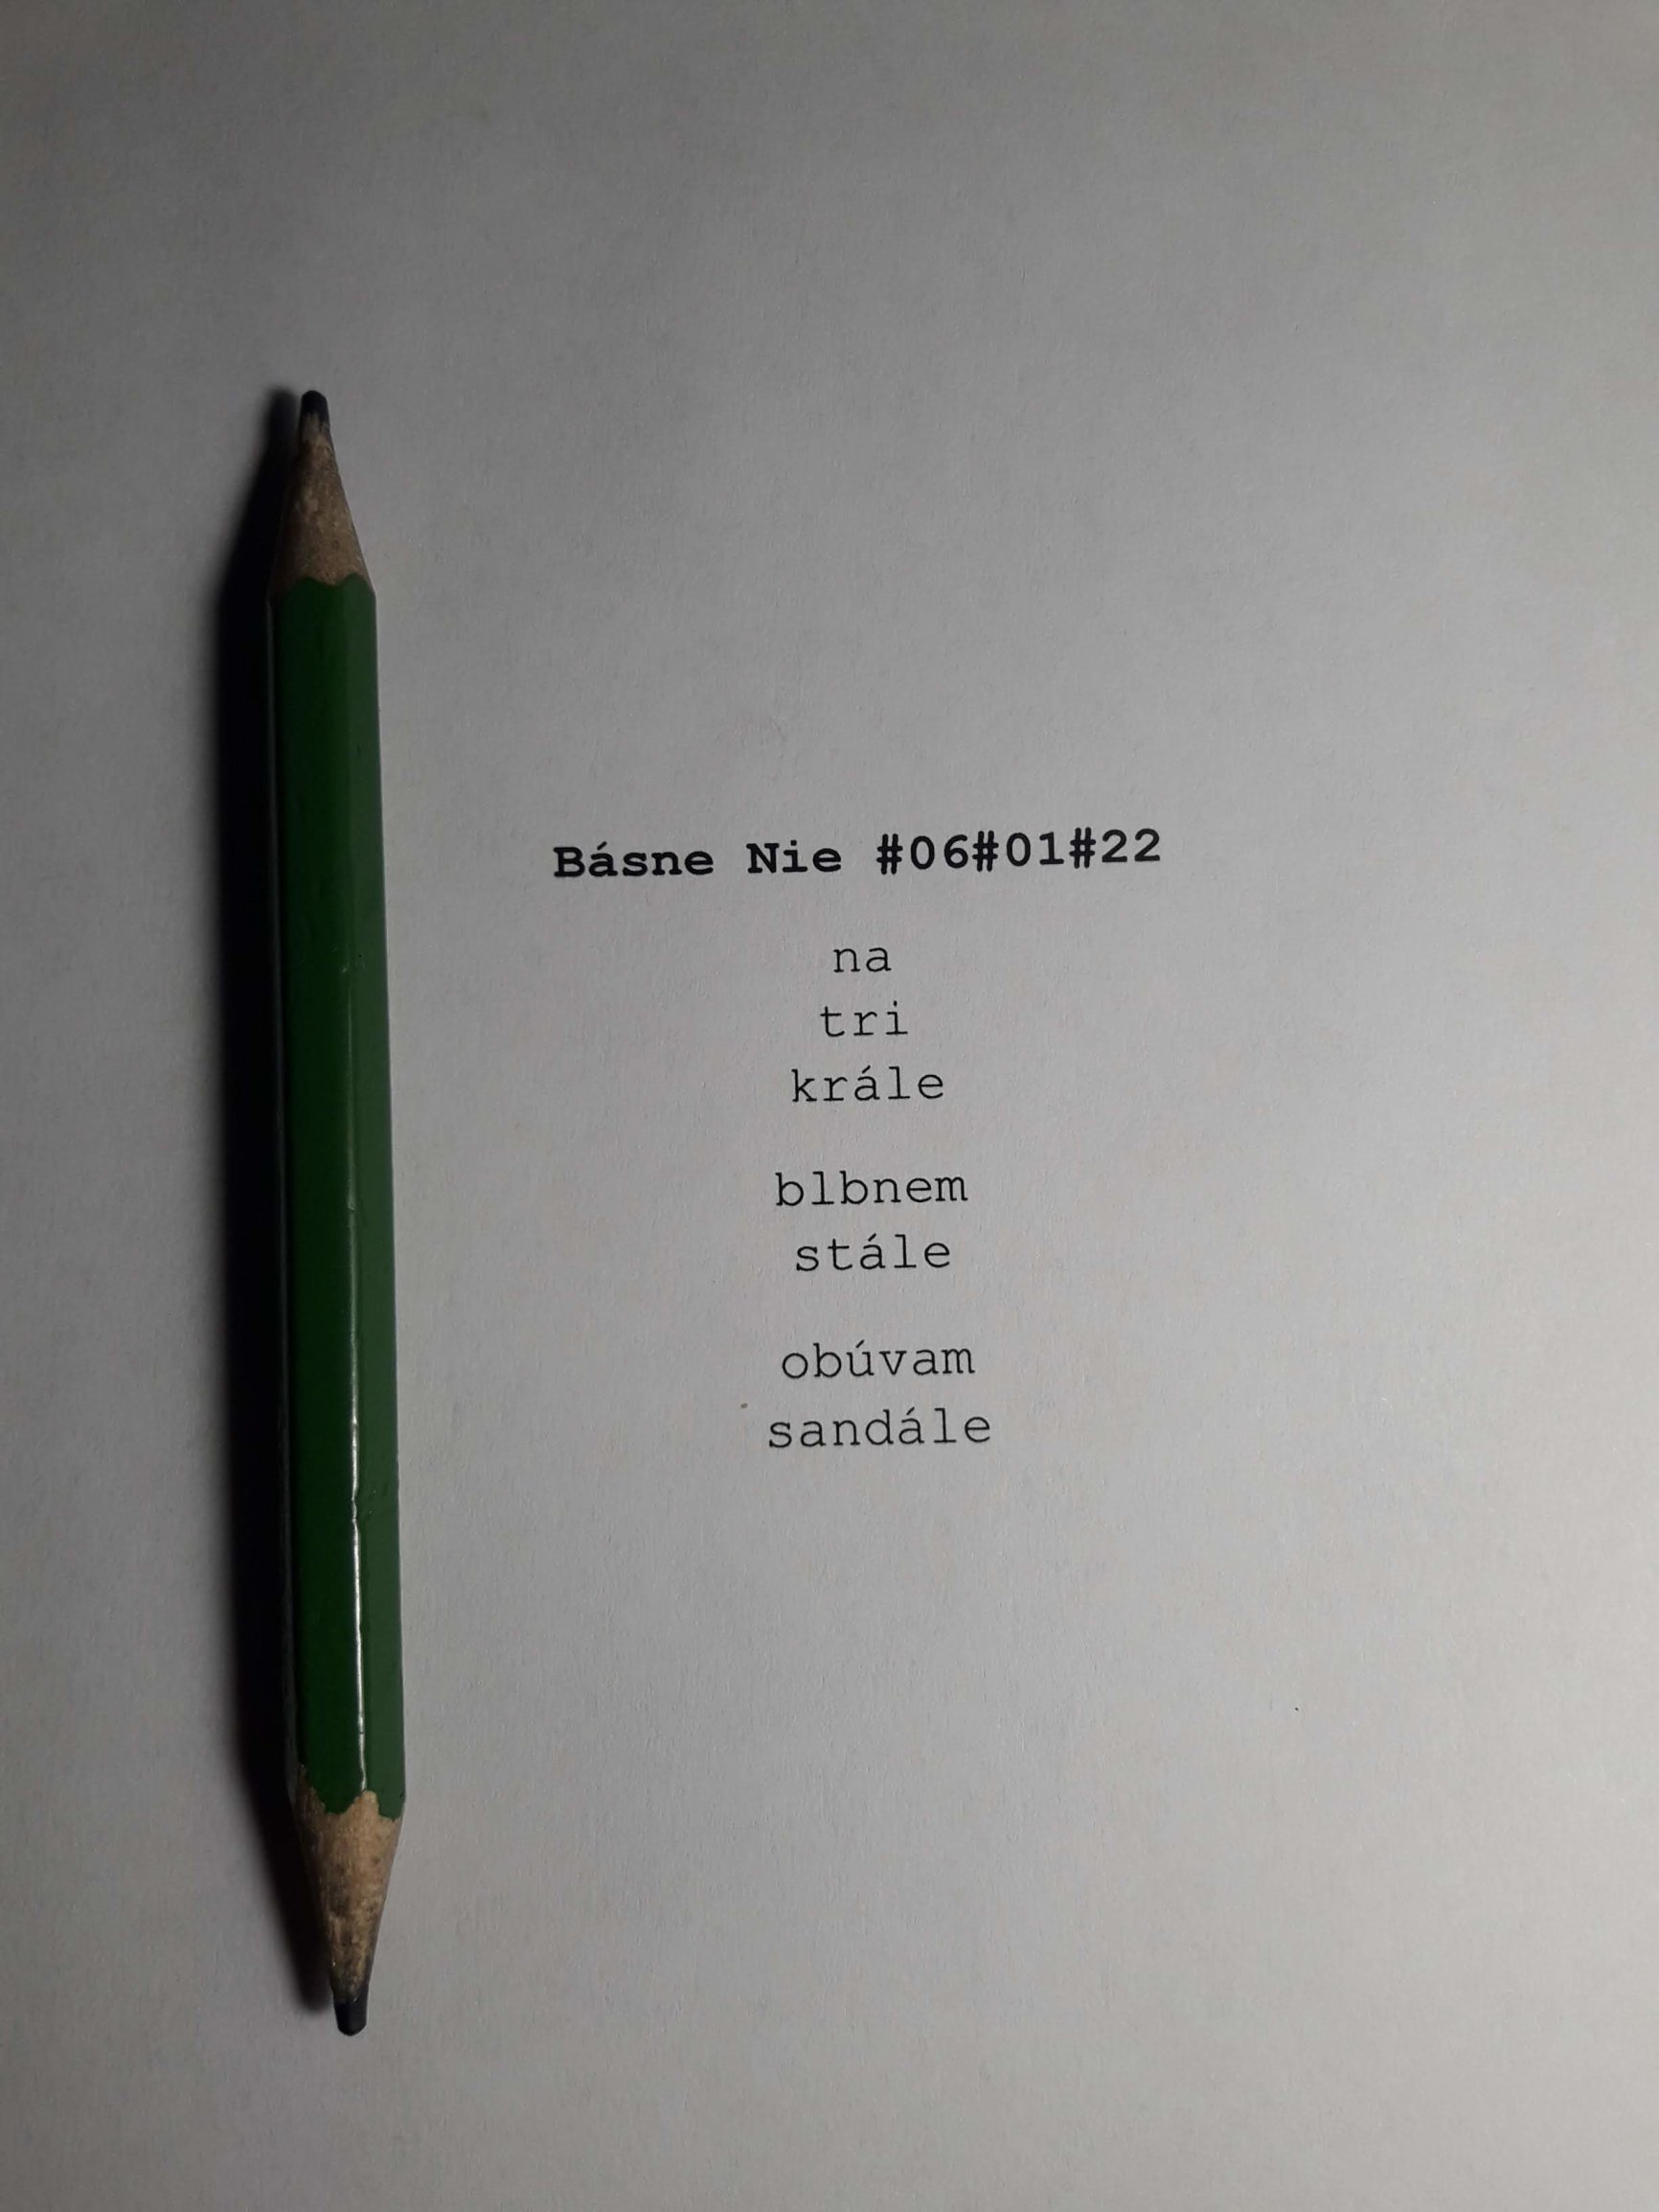 Básne Nie #06#01#22
na
tri
krále
blbnem
stále
obúvam
sandále